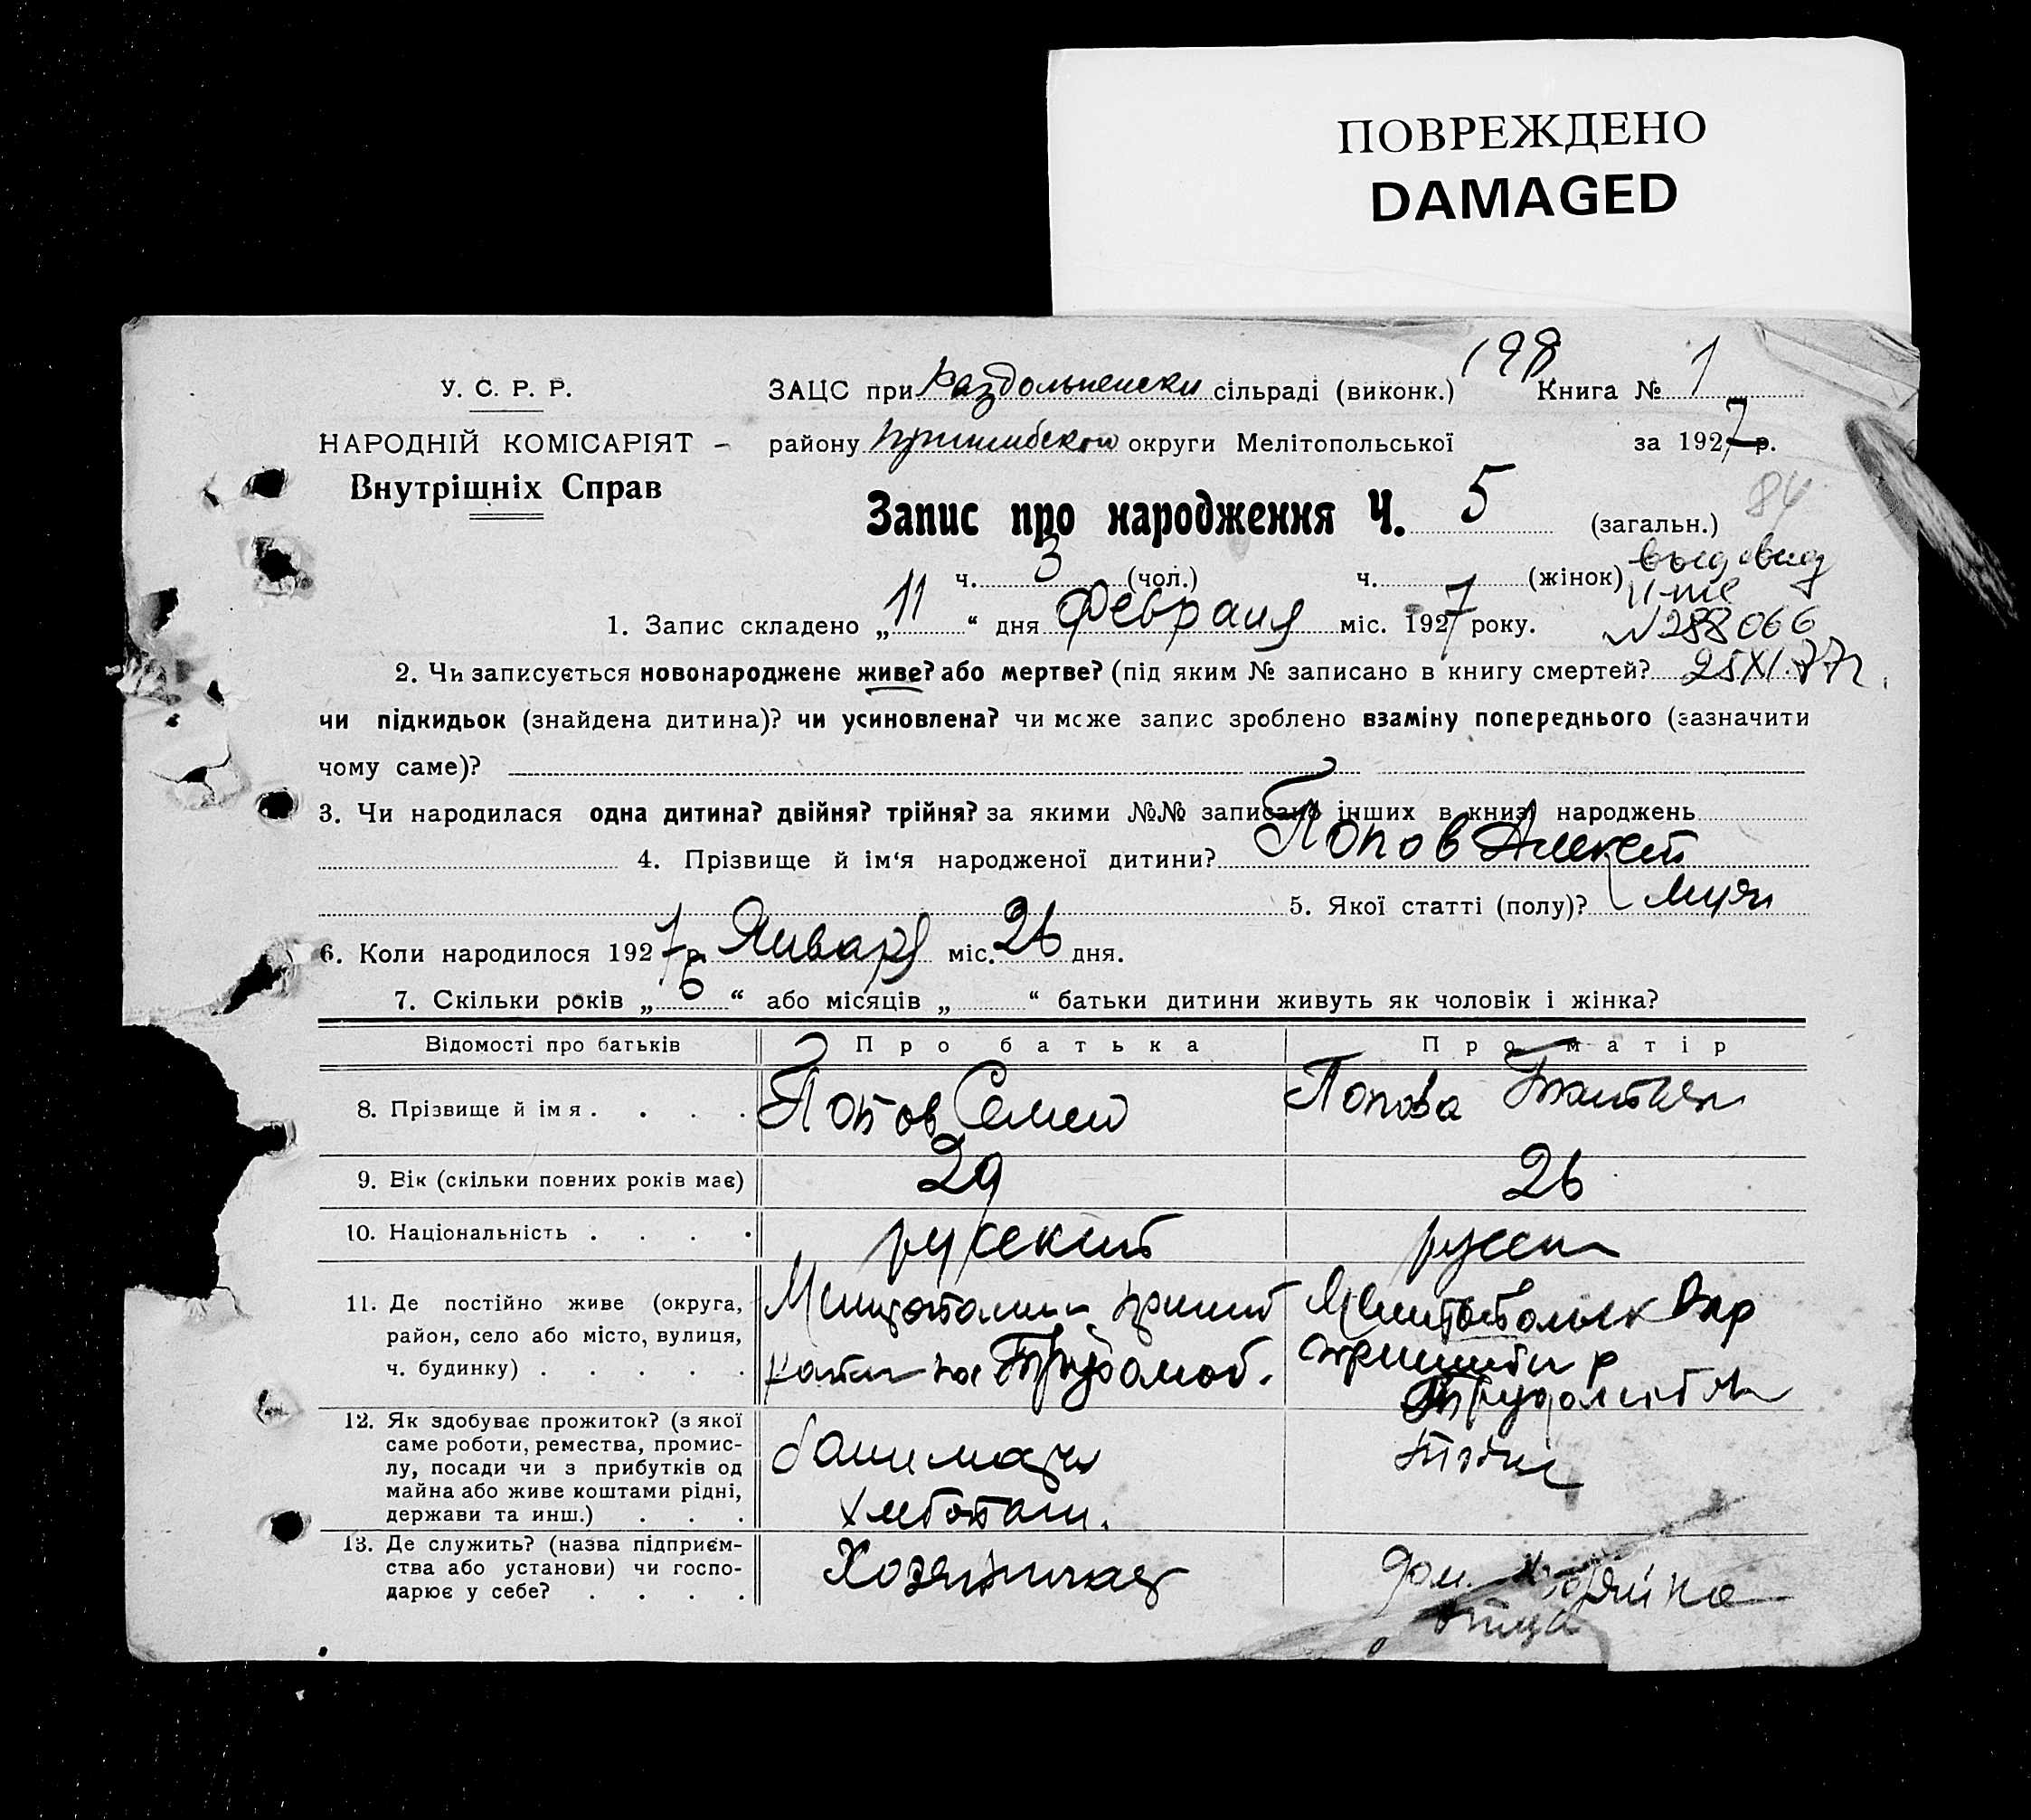 ПОВРЕЖДЕНО
DAMAGED
198
У. С. Р. Р.
ЗАЦС при Раздольненски сільраді (виконк.) Книга № 1
НАРОДНІЙ КОМІСАРІЯТ –
району Пришибской округи Мелітопольської за 1927 р.
Внутрішніх Справ
Запис про народження Ч. 5 (загальн.) 84
ч. 3 (чол.) ч. (жінок)
1. Запис складено „11“ дня Февраля міс. 1927 року.
№ 288066
2. Чи записується новонароджене живе? або мертве? (під яким № записано в книгу смертей? 25 XI. 77г.
чи підкидьок (знайдена дитина)? чи усиновлена? чи може запис зроблено взаміну попереднього (зазначити
чому саме)?
3. Чи народилася одна дитина? двійня? трійня? за якими №№ записано інших в книзі народжень
4. Прізвище й ім‘я народженої дитини? Попов Алексей
5. Якої статті (полу)? муж
6. Коли народилося 1927 р. Января міс. 26 дня.
7. Скільки років „6“ або місяців „ “ батьки дитини живуть як чоловік і жінка?
Відомості про батьків Про батька Про матір
8. Прізвище й імя . . . . Попов Семен Попова Татьян
9. Вік (скільки повних років має) 29 26
10. Національність . . . . русский русска
11. Де постійно живе (округа,
район, село або місто, вулиця,
ч. будинку) . . . . .
Мелитопольск Окр
12. Як здобуває прожиток? (з якої
саме роботи, ремества, промис-
лу, посади чи з прибутків од
майна або живе коштами рідні,
держави та инш.) . . .
хлебопаш.
13. Де служить? (назва підприєм-
ства або установи) чи госпо-
дарює у себе? . . . .
дом. хозяйка